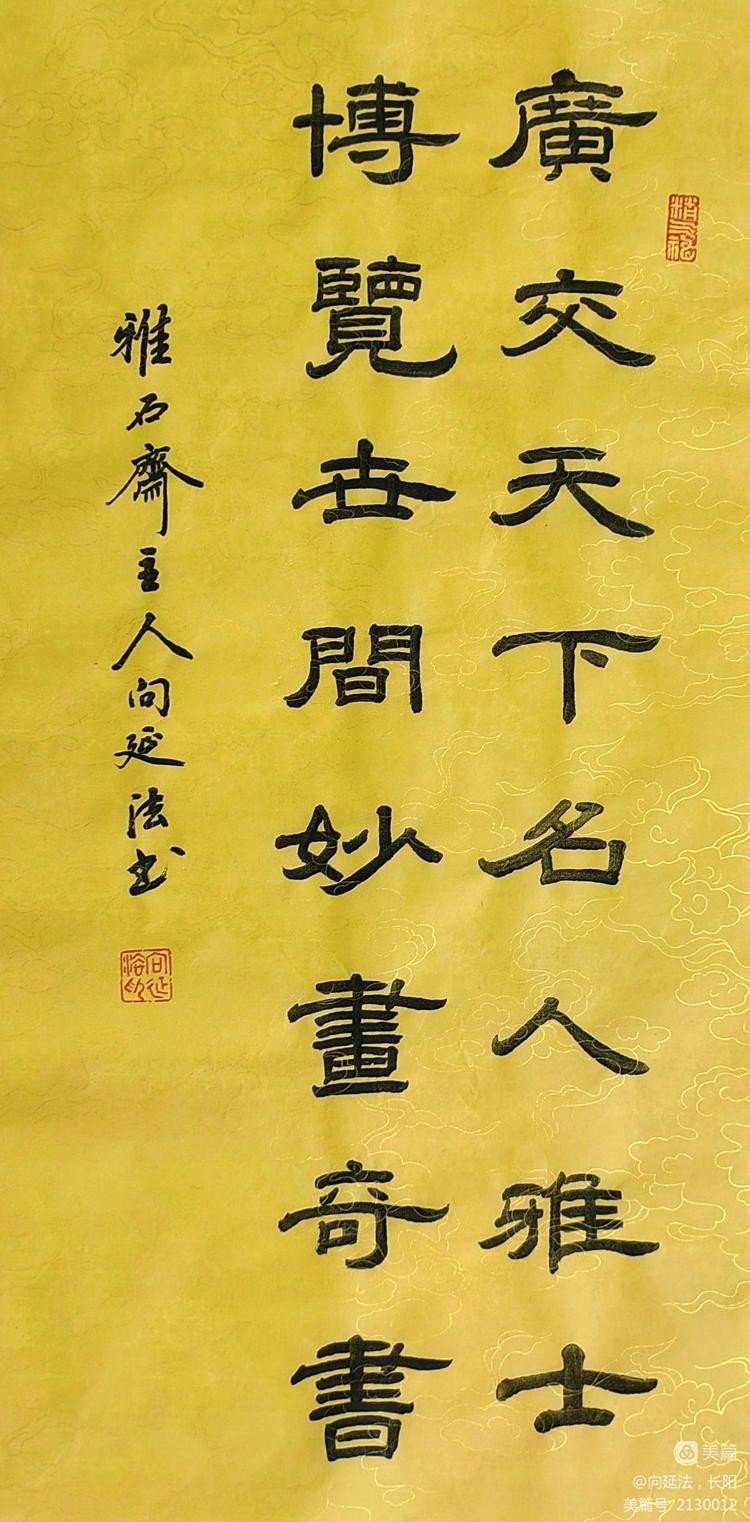 廣交天下名人雅士
博覽世間妙畫奇書
雅石齋主人向延法书
美篇
@向延法，长阳
美篇号 2130012